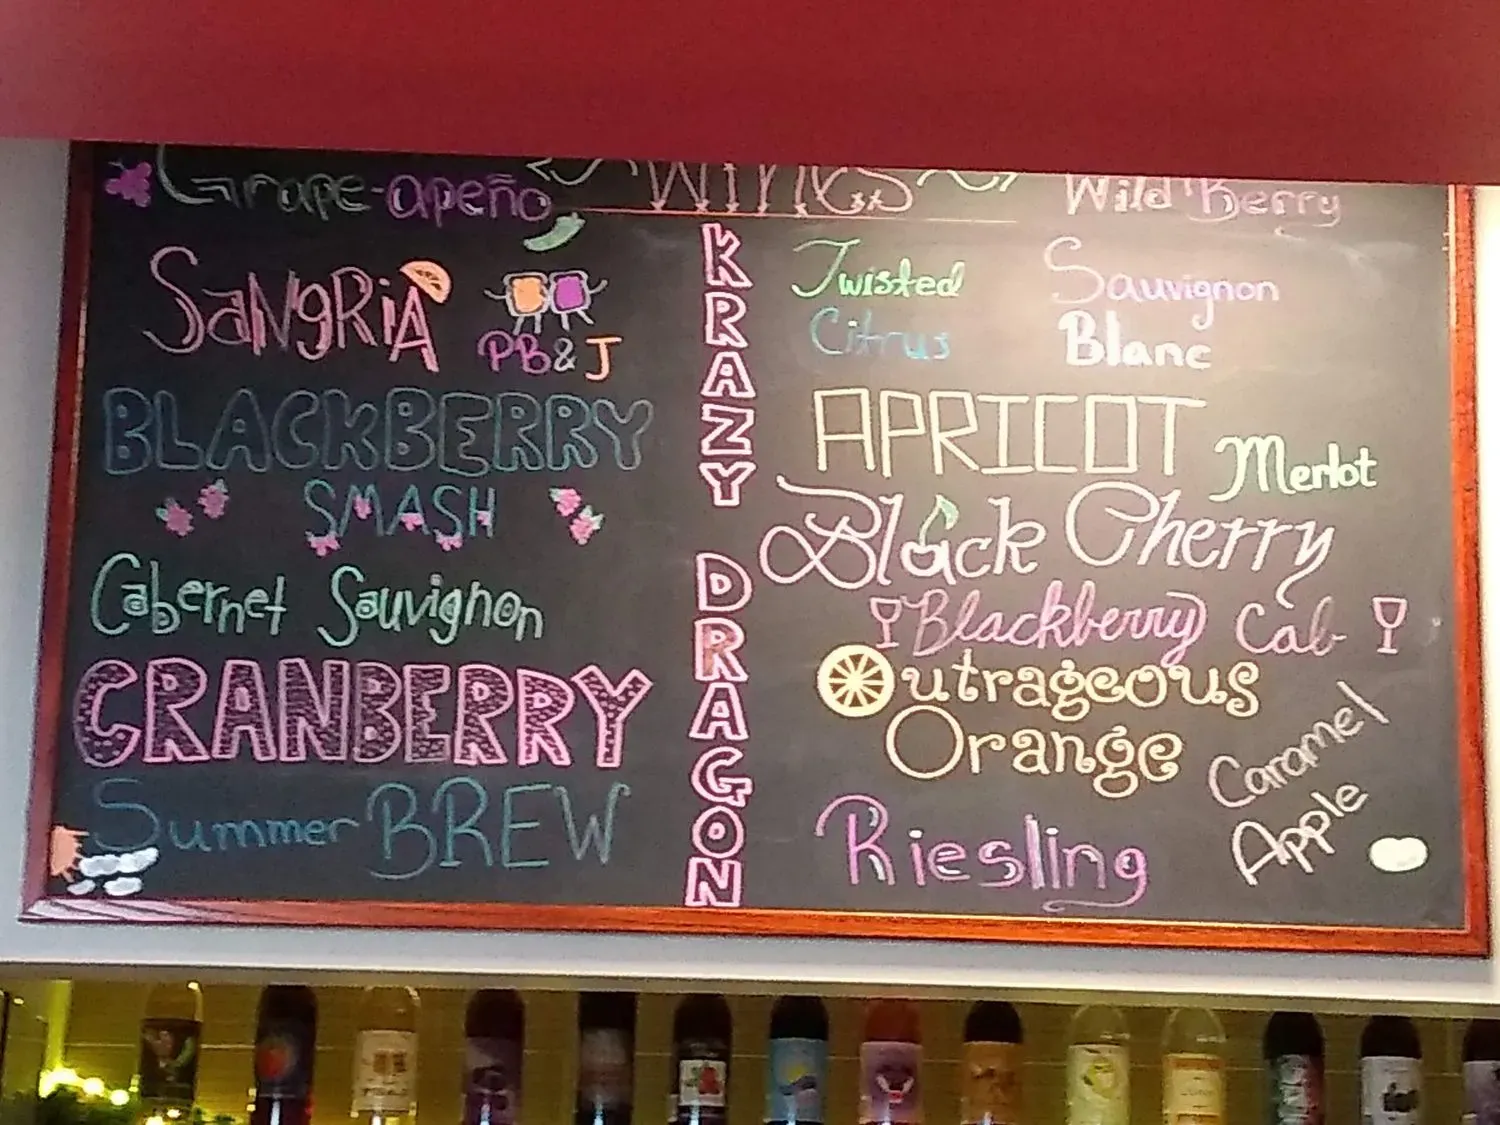 Wines
Grape-apeño
SaNgRiA
PB&J
BLACKBERRY
SMASH
Cabernet Sauvignon
CRANBERRY
Summer BREW
KRAZY
DRAGON
Wild Berry
Twisted
Citrus
Sauvignon
Blanc
APRICOT
Merlot
Black Cherry
Blackberry Cab
Outrageous
Orange
Caramel
Apple
Riesling